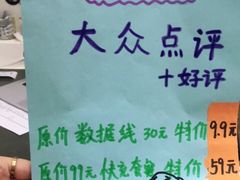 大众点评
+好评
原价 数据线 30元 特价 9.9元
原价99元 快充套装 特价 59元